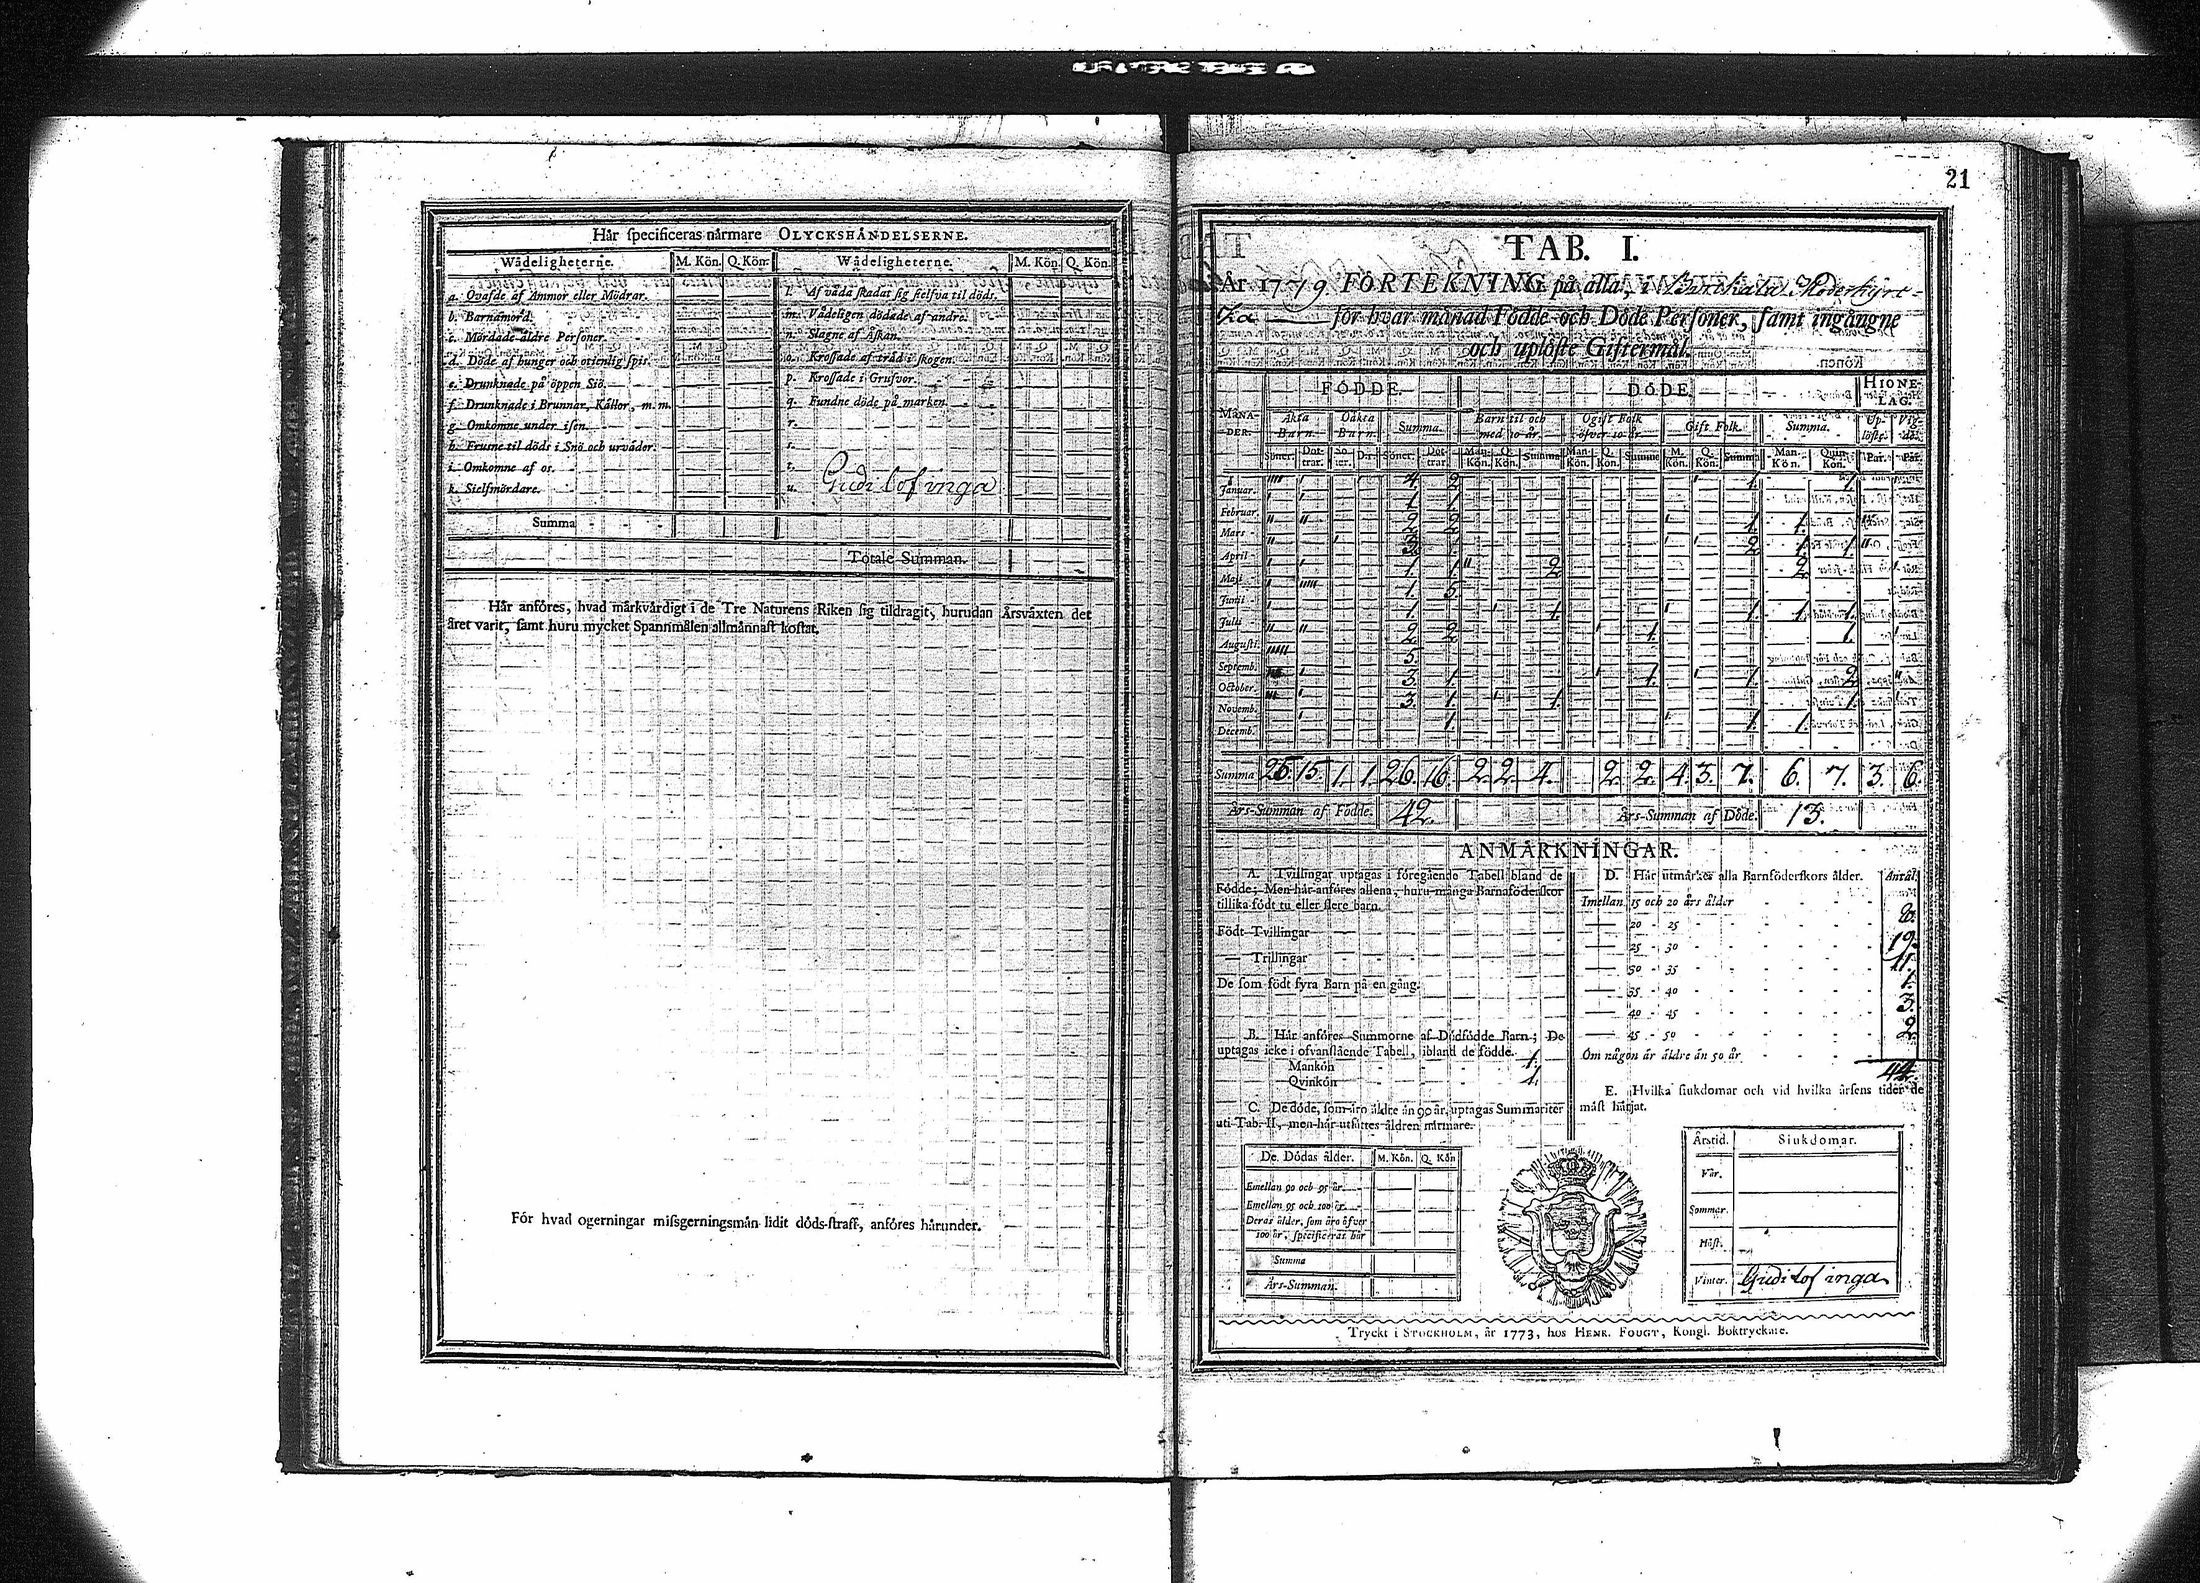 Här specificeras närmare OLYCKSHÄNDELSERNE.
Wådeligheterne. M. Kön. Q. Kön. Wådeligheterne. M. Kön. Q. Kön.
a. Qvafde af Ammor eller Mödrar. l. Af våda skadat sig sielfva til döds.
b. Barnamord. m. Vådeligen dödade af andre.
c. Mördade äldre Personer. n. Slagne af Åskan.
d. Döde af hunger och otienlig spis. o. Krossade af träd i skogen.
e. Drunknade på öppen Siö. p. Krossade i Grufvor.
f. Drunknade i Brunnar, Källor, m. m. q. Fundne döde på marken.
g. Omkomne under isen. r.
h. Frusne til döds i Snö och urväder. s.
i. Omkomne af os. t.
k. Sielfmördare. u. Gudi lof inga
Summa
Totale Summan.
Här anföres, hvad märkvärdigt i de Tre Naturens Riken sig tildragit, hurudan Årsväxten det
året varit, samt huru mycket Spannmålen allmännast kostat.
För hvad ogerningar missgerningsmän lidit döds-straff, anföres härunder.
21
TAB. I.
År 1779 FÖRTEKNING på alla, i Moderkyrc-
ka för hvar månad Födde och Döde Personer, samt ingångne
och uplöste Giftermål.
FÖDDE. DÖDE. HIONE-LAG.
MÅNA-DER. Äkta Barn. Oäkta Barn. Summa. Barn til och med 10 år. Ogift Folk öfver 10 år. Gift Folk. Summa. Up-löste. Vig-de.
Söner. Döt-trar. Sö-ner. D:r. Söner. Döt-trar. Man-Kön. Q. Kön. Summa Man-Kön. Q. Kön. Summa M. Kön. Q. Kön. Summa Man-Kön. Quin-Kön. Par. Par.
Januar. 4. 2. 1. 1.
Februar. 1. 1.
Mars 2. 2. 1. 1.
April 3. 1. 2. 1. 1.
Maji 1. 1. 2. 2.
Junii 1. 5.
Julii 1. 1. 1. 1. 1.
Augusti. 2. 2. 1. 1.
Septemb. 5.
October. 3. 1. 1. 1. 2.
Novemb. 3. 1. 1. 1.
Decemb. 1. 1. 1.
Summa 25. 15. 1. 1. 26. 16. 2. 2. 4. 2. 2. 4. 3. 7. 6. 7. 3. 6.
Års-Summan af Födde. 42. Års-Summan af Döde. 13.
ANMÄRKNINGAR.
A. Tvillingar uptagas i föregående Tabell bland de
Födde; Men här anföres allena, huru många Barnaföderskor
tillika födt tu eller flere barn.
Födt Tvillingar
— Trillingar
De som födt fyra Barn på en gång.
B. Här anföres Summorne af Dödfödde Barn; De
uptagas icke i ofvanstående Tabell, ibland de födde.
Mankön 1.
Qvinkön 1.
C. De döde, som äro äldre än 90 år, uptagas Summariter
uti Tab. II, men här utsättes åldren närmare.
De Dödas ålder. M. Kön. Q. Kön
Emellan 90 och 95 år.
Emellan 95 och 100 år.
Deras ålder, som äro öfver
100 år, specificeras här
Summa
Års-Summan.
D. Här utmärkes alla Barnföderskors ålder. Antal.
Imellan 15 och 20 års ålder
— 20 - 25 8.
— 25 - 30 19.
— 30 - 35 11.
— 35 - 40 1.
— 40 - 45 3.
— 45 - 50 2.
Om någon är äldre än 50 år
44.
E. Hvilka siukdomar och vid hvilka årsens tider de
mäst härjat.
Årstid. Siukdomar.
Vår.
Sommar.
Höst.
Vinter. Gudi lof inga
Tryckt i STOCKHOLM, år 1773, hos HENR. FOUGT, Kongl. Boktryckare.